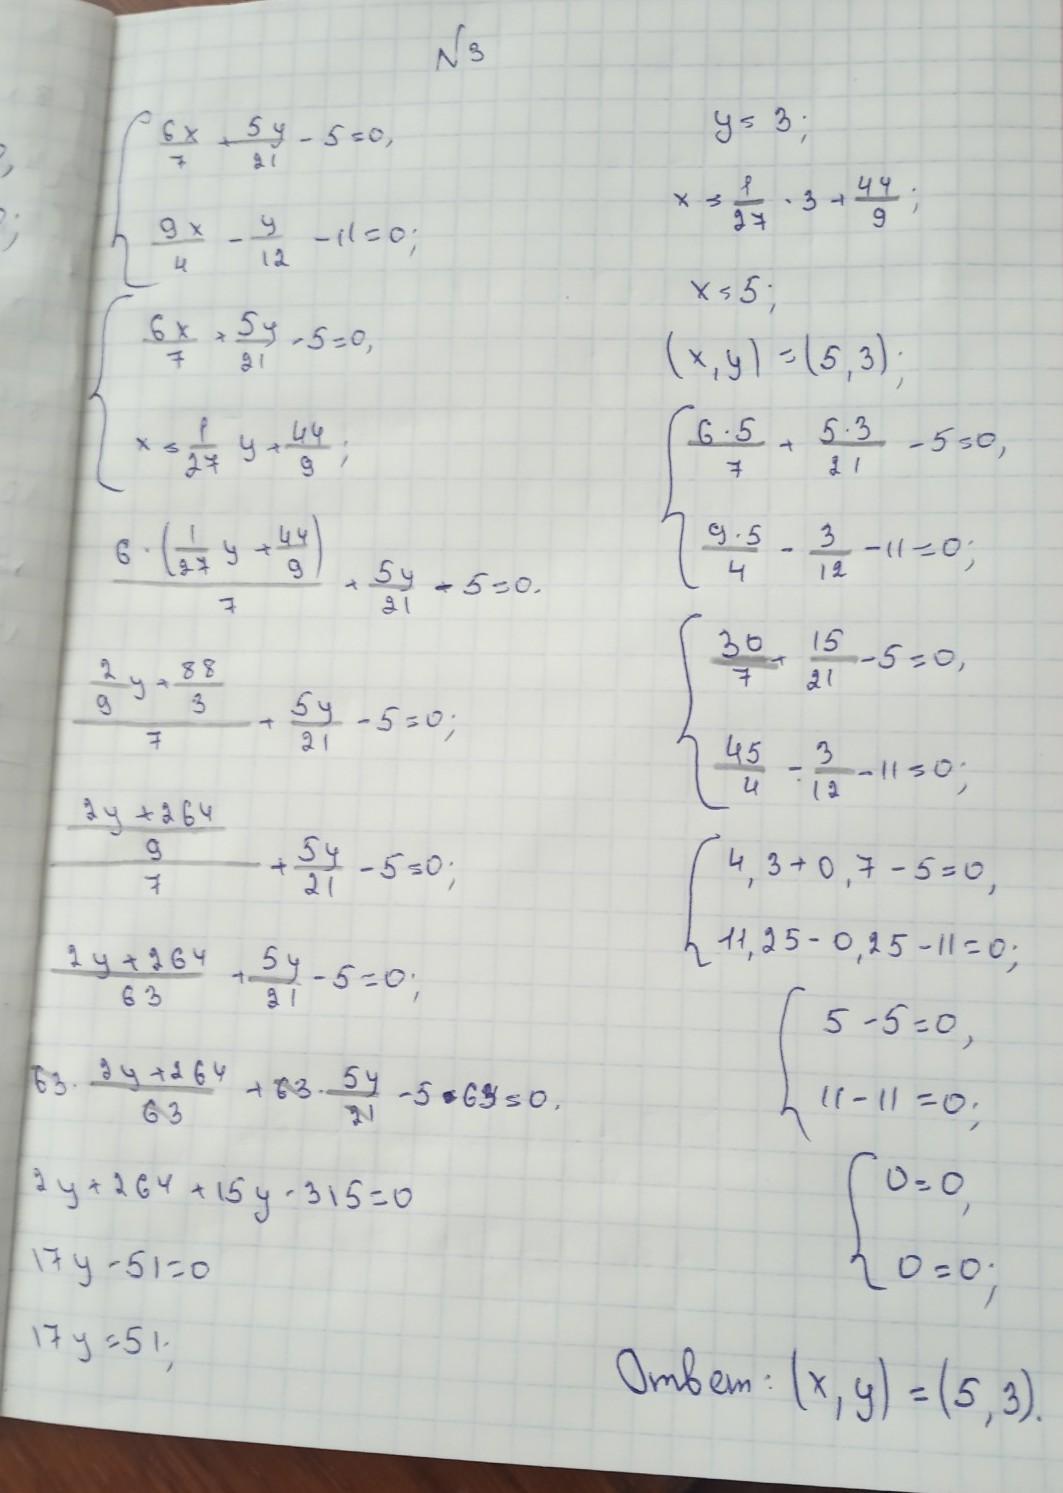 №3
6x/7 + 5y/21 - 5=0,
9x/4 - y/12 - 11=0;
6x/7 + 5y/21 - 5=0,
x = 1/27 y + 44/9;
6·(1/27 y + 44/9)/7 + 5y/21 - 5=0.
(2/9 y + 88/3)/7 + 5y/21 - 5=0;
((2y+264)/9)/7 + 5y/21 - 5=0;
(2y+264)/63 + 5y/21 - 5=0;
63· (2y+264)/63 + 63· 5y/21 - 5·63=0.
2y+264+15y-315=0
17y-51=0
17y=51;
y=3;
x = 1/27 · 3 + 44/9;
x=5;
(x,y)=(5,3);
6·5/7 + 5·3/21 - 5=0,
9·5/4 - 3/12 - 11=0;
30/7 + 15/21 - 5=0,
45/4 - 3/12 - 11=0;
4,3+0,7-5=0,
11,25-0,25-11=0;
5-5=0,
11-11=0;
0=0,
0=0;
Ответ: (x,y)=(5,3).